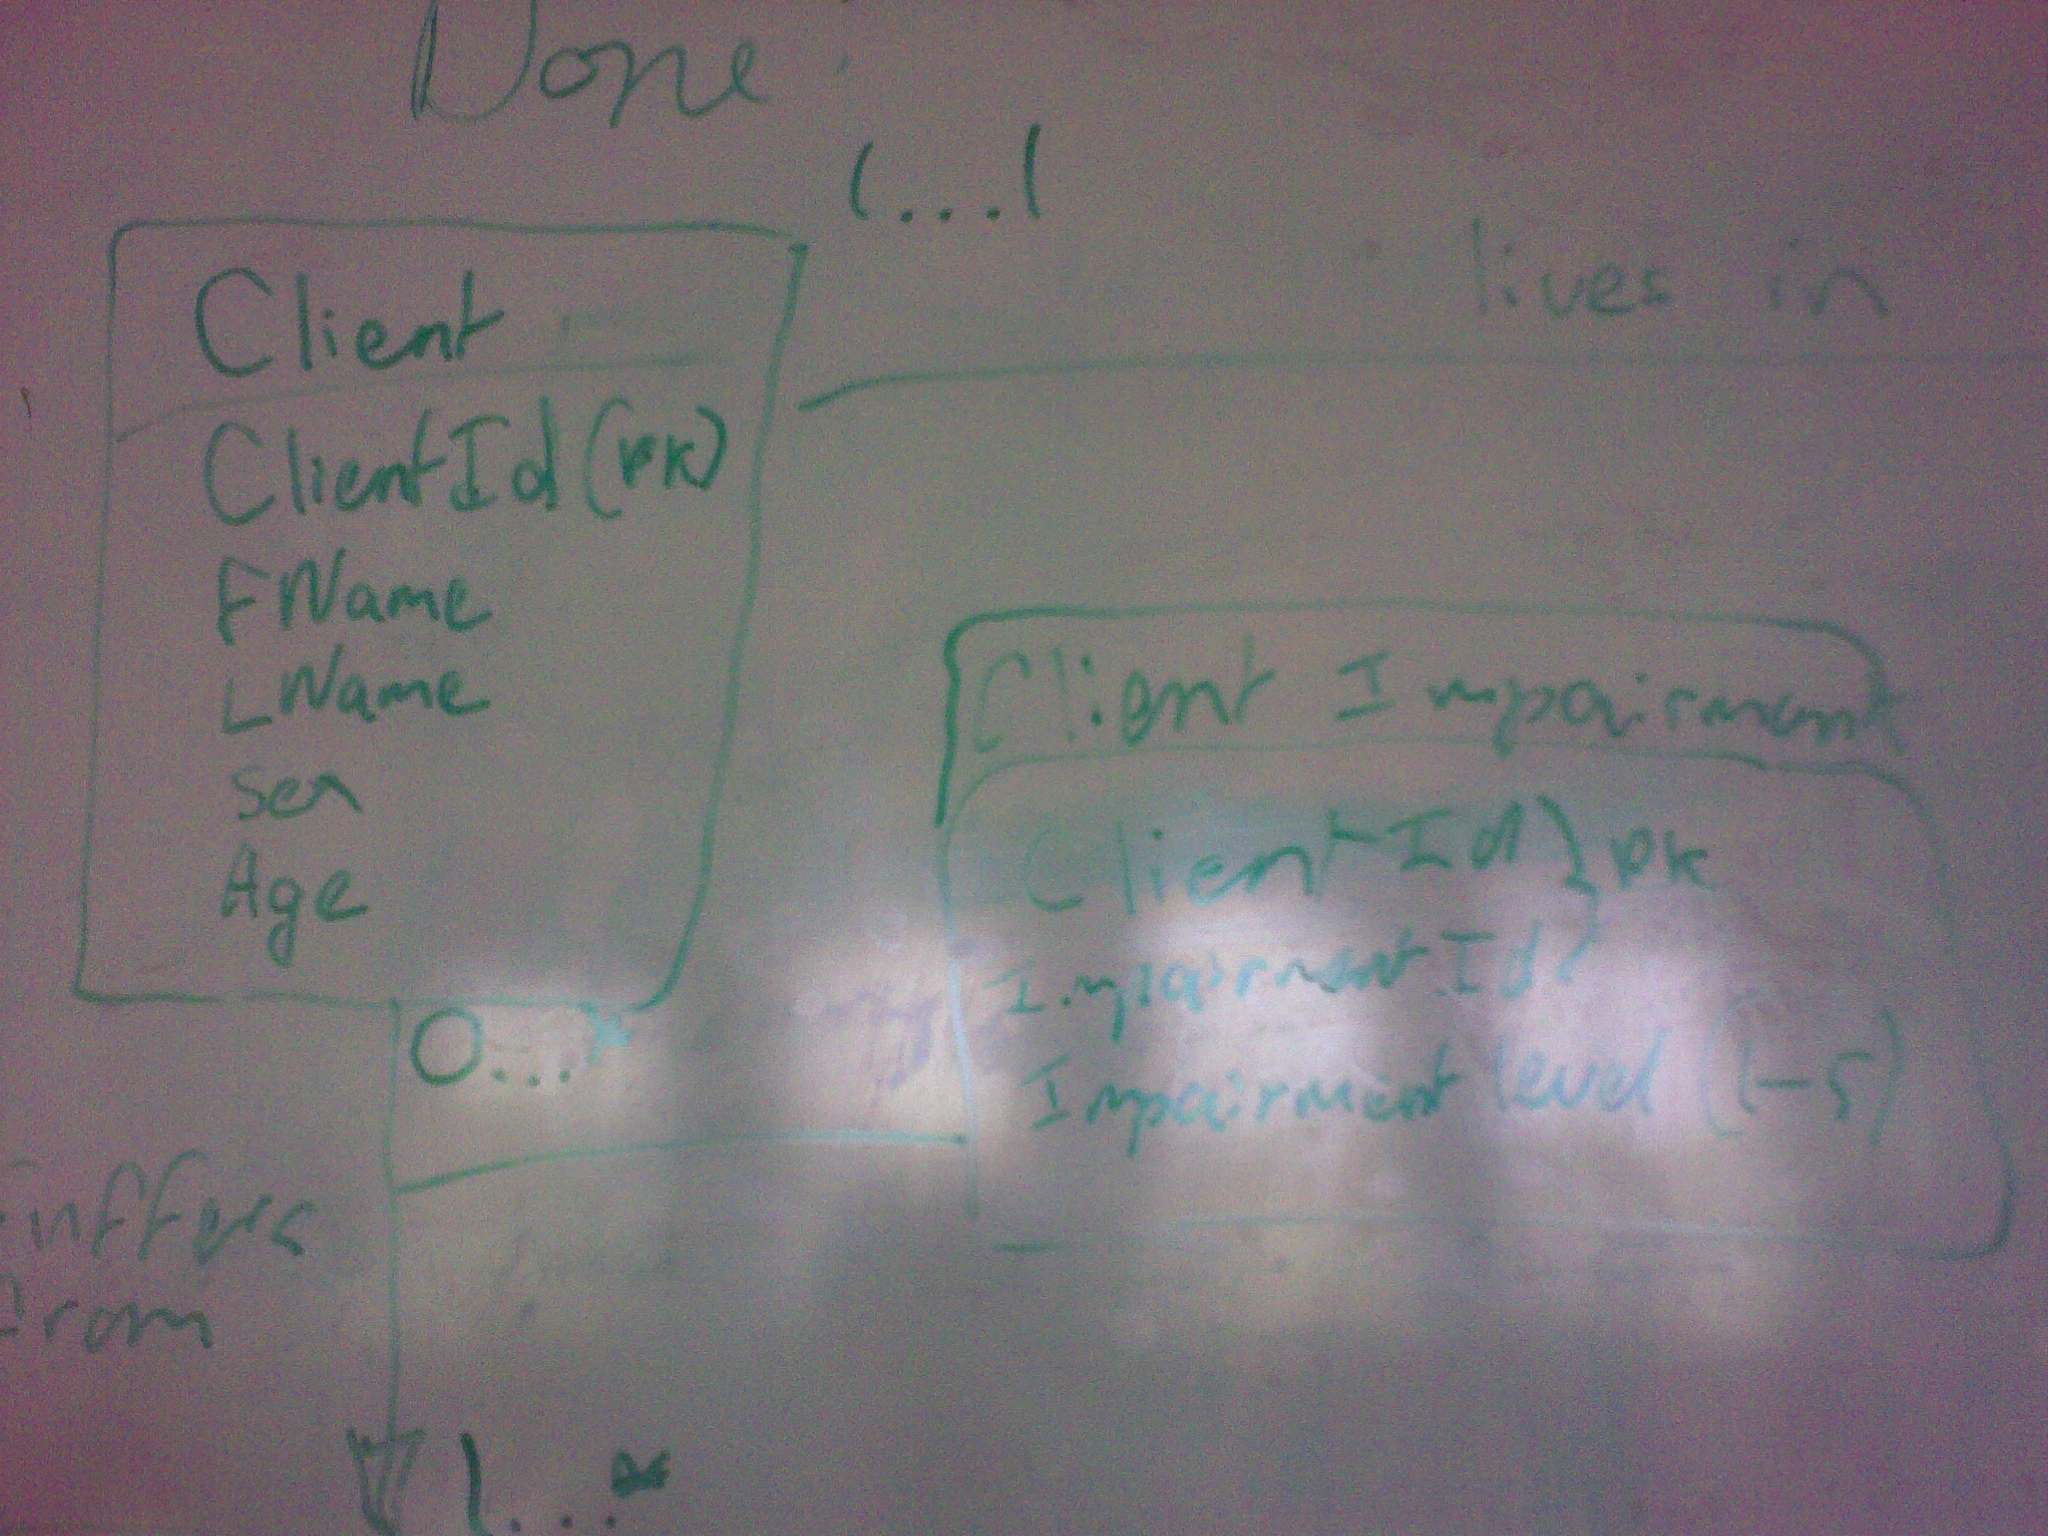 Done
1...1
lives in
Client
ClientId (PK)
FName
LName
Sex
Age
0...*
Client Impairment
ClientId } PK
ImpairmentId
Impairment level (1-5)
suffers
from
1...*